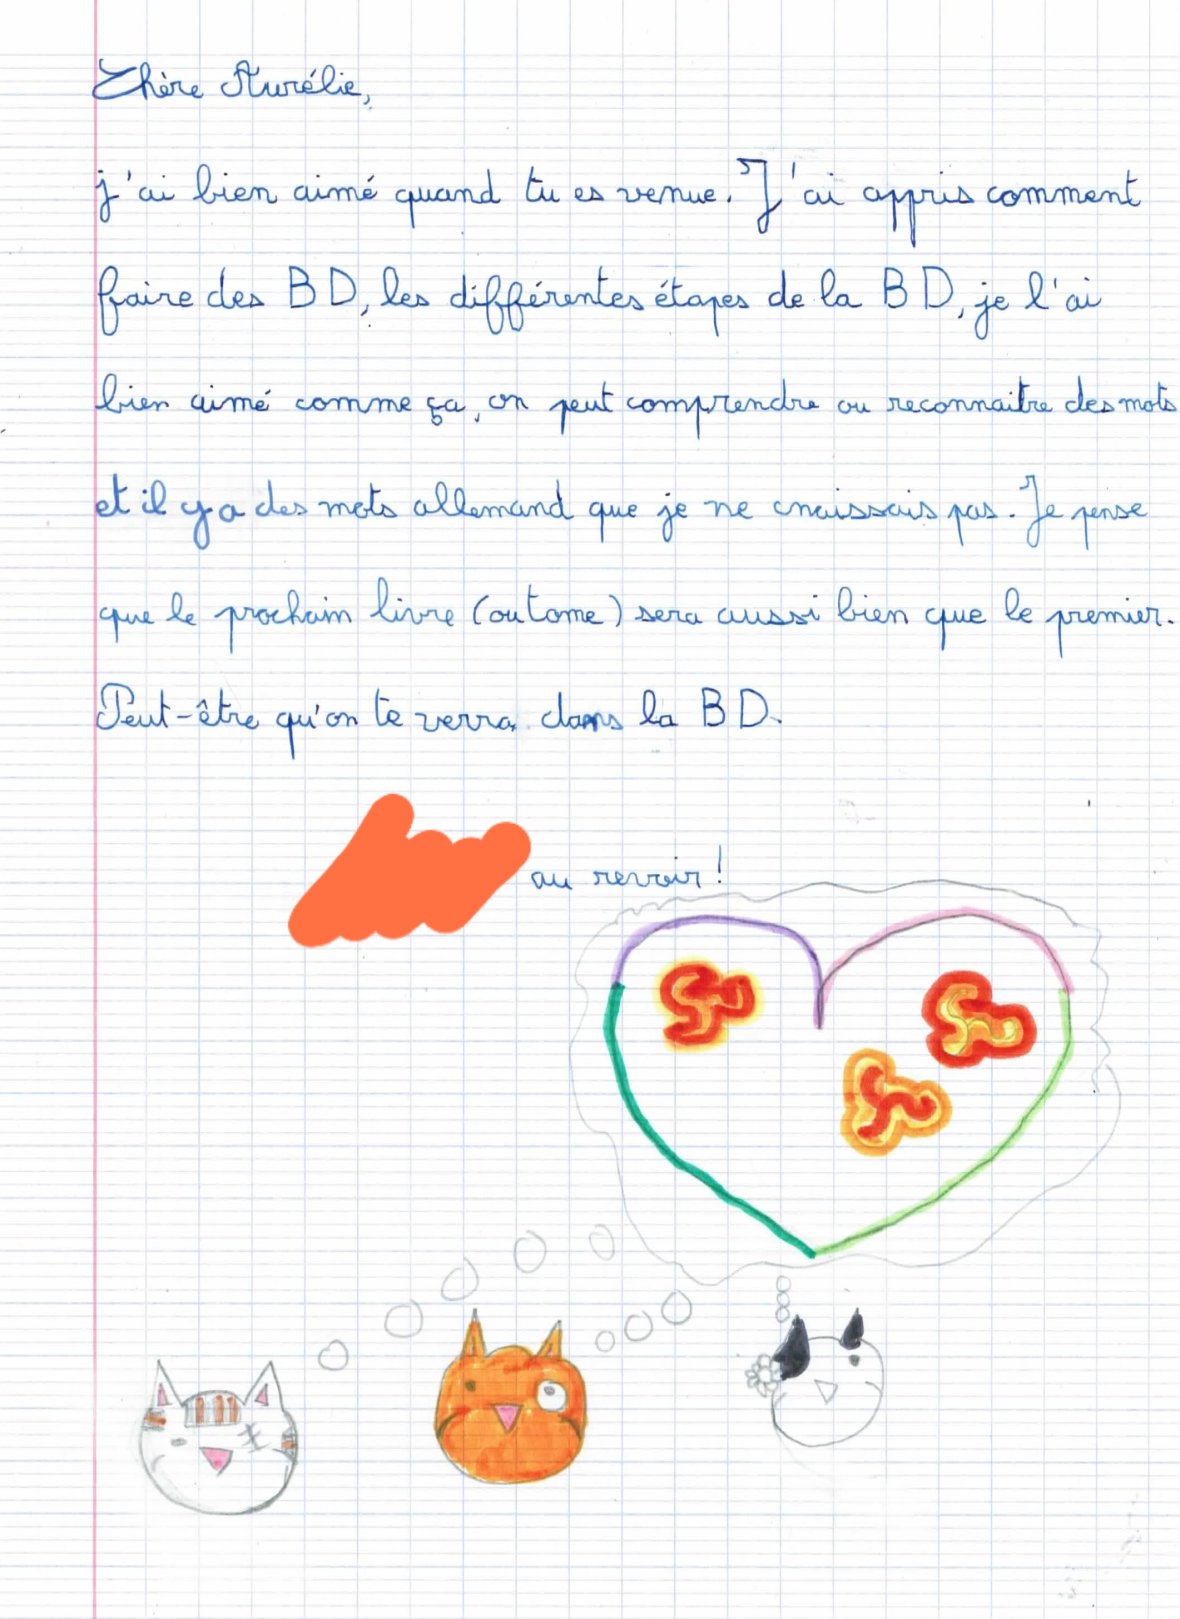 Chère Aurélie,
j'ai bien aimé quand tu es venue. J'ai appris comment
faire des BD, les différentes étapes de la BD, je l'ai
bien aimé comme ça, on peut comprendre ou reconnaitre des mots
et il y a des mots allemand que je ne cnaissais pas. Je pense
que le prochain livre (outome) sera aussi bien que le premier.
Peut-être qu'on te verra dans la BD.
au revoir !